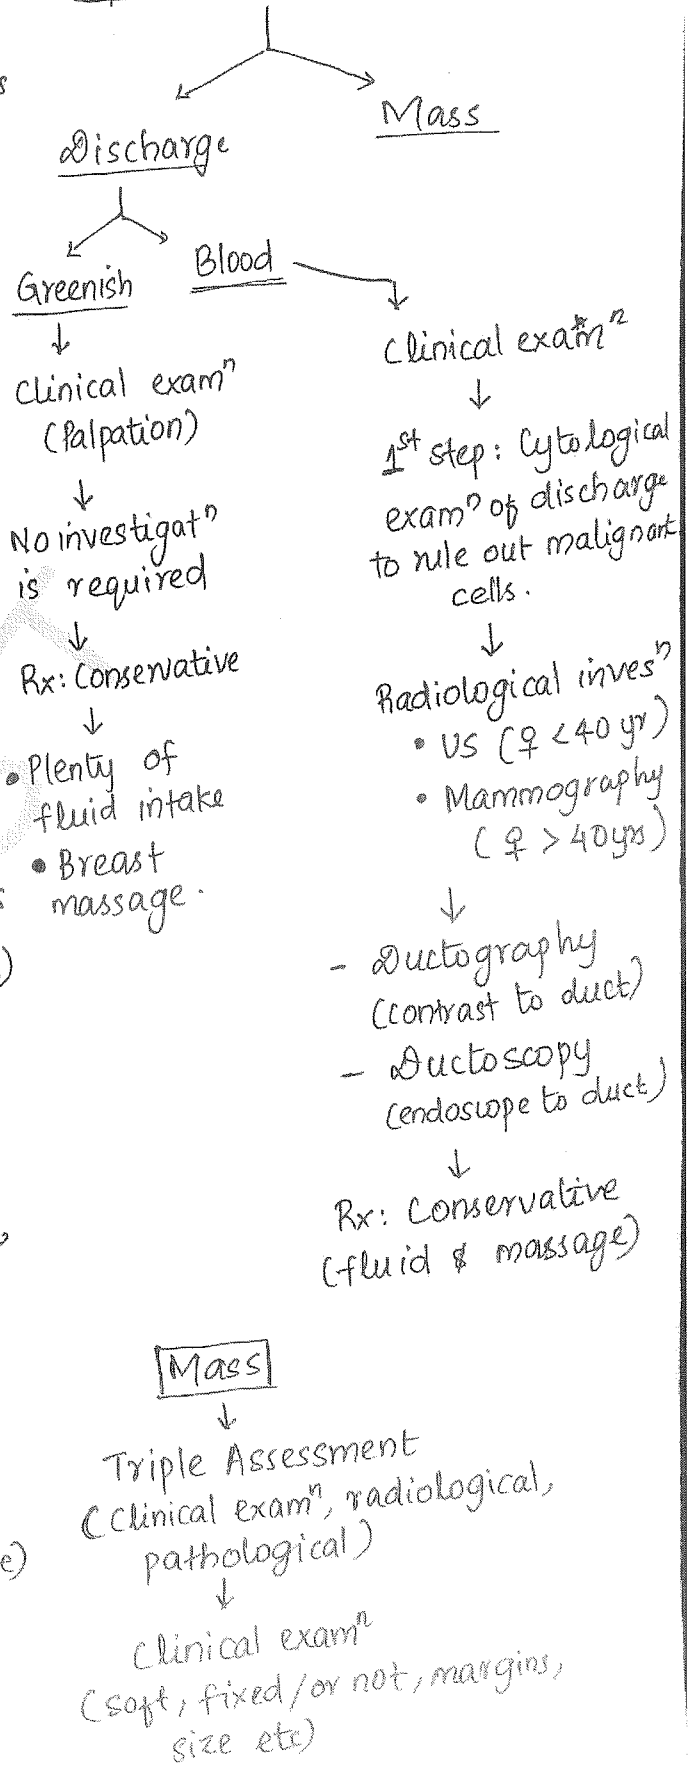 Discharge
Mass
Greenish
Blood
Clinical examⁿ
(Palpation)
No investigatⁿ
is required
Rx: Conservative
• Plenty of
fluid intake
• Breast
massage.
Clinical examⁿ
1st step: Cytological
examⁿ of discharge
to rule out malignant
cells.
Radiological invesⁿ
• US (♀ <40 yr)
• Mammography
(♀ > 40yrs)
- Ductography
(contrast to duct)
- Ductoscopy
(endoscope to duct)
Rx: Conservative
(fluid & massage)
Mass
Triple Assessment
(Clinical examⁿ, radiological,
pathological)
Clinical examⁿ
(soft, fixed/or not, margins,
size etc)